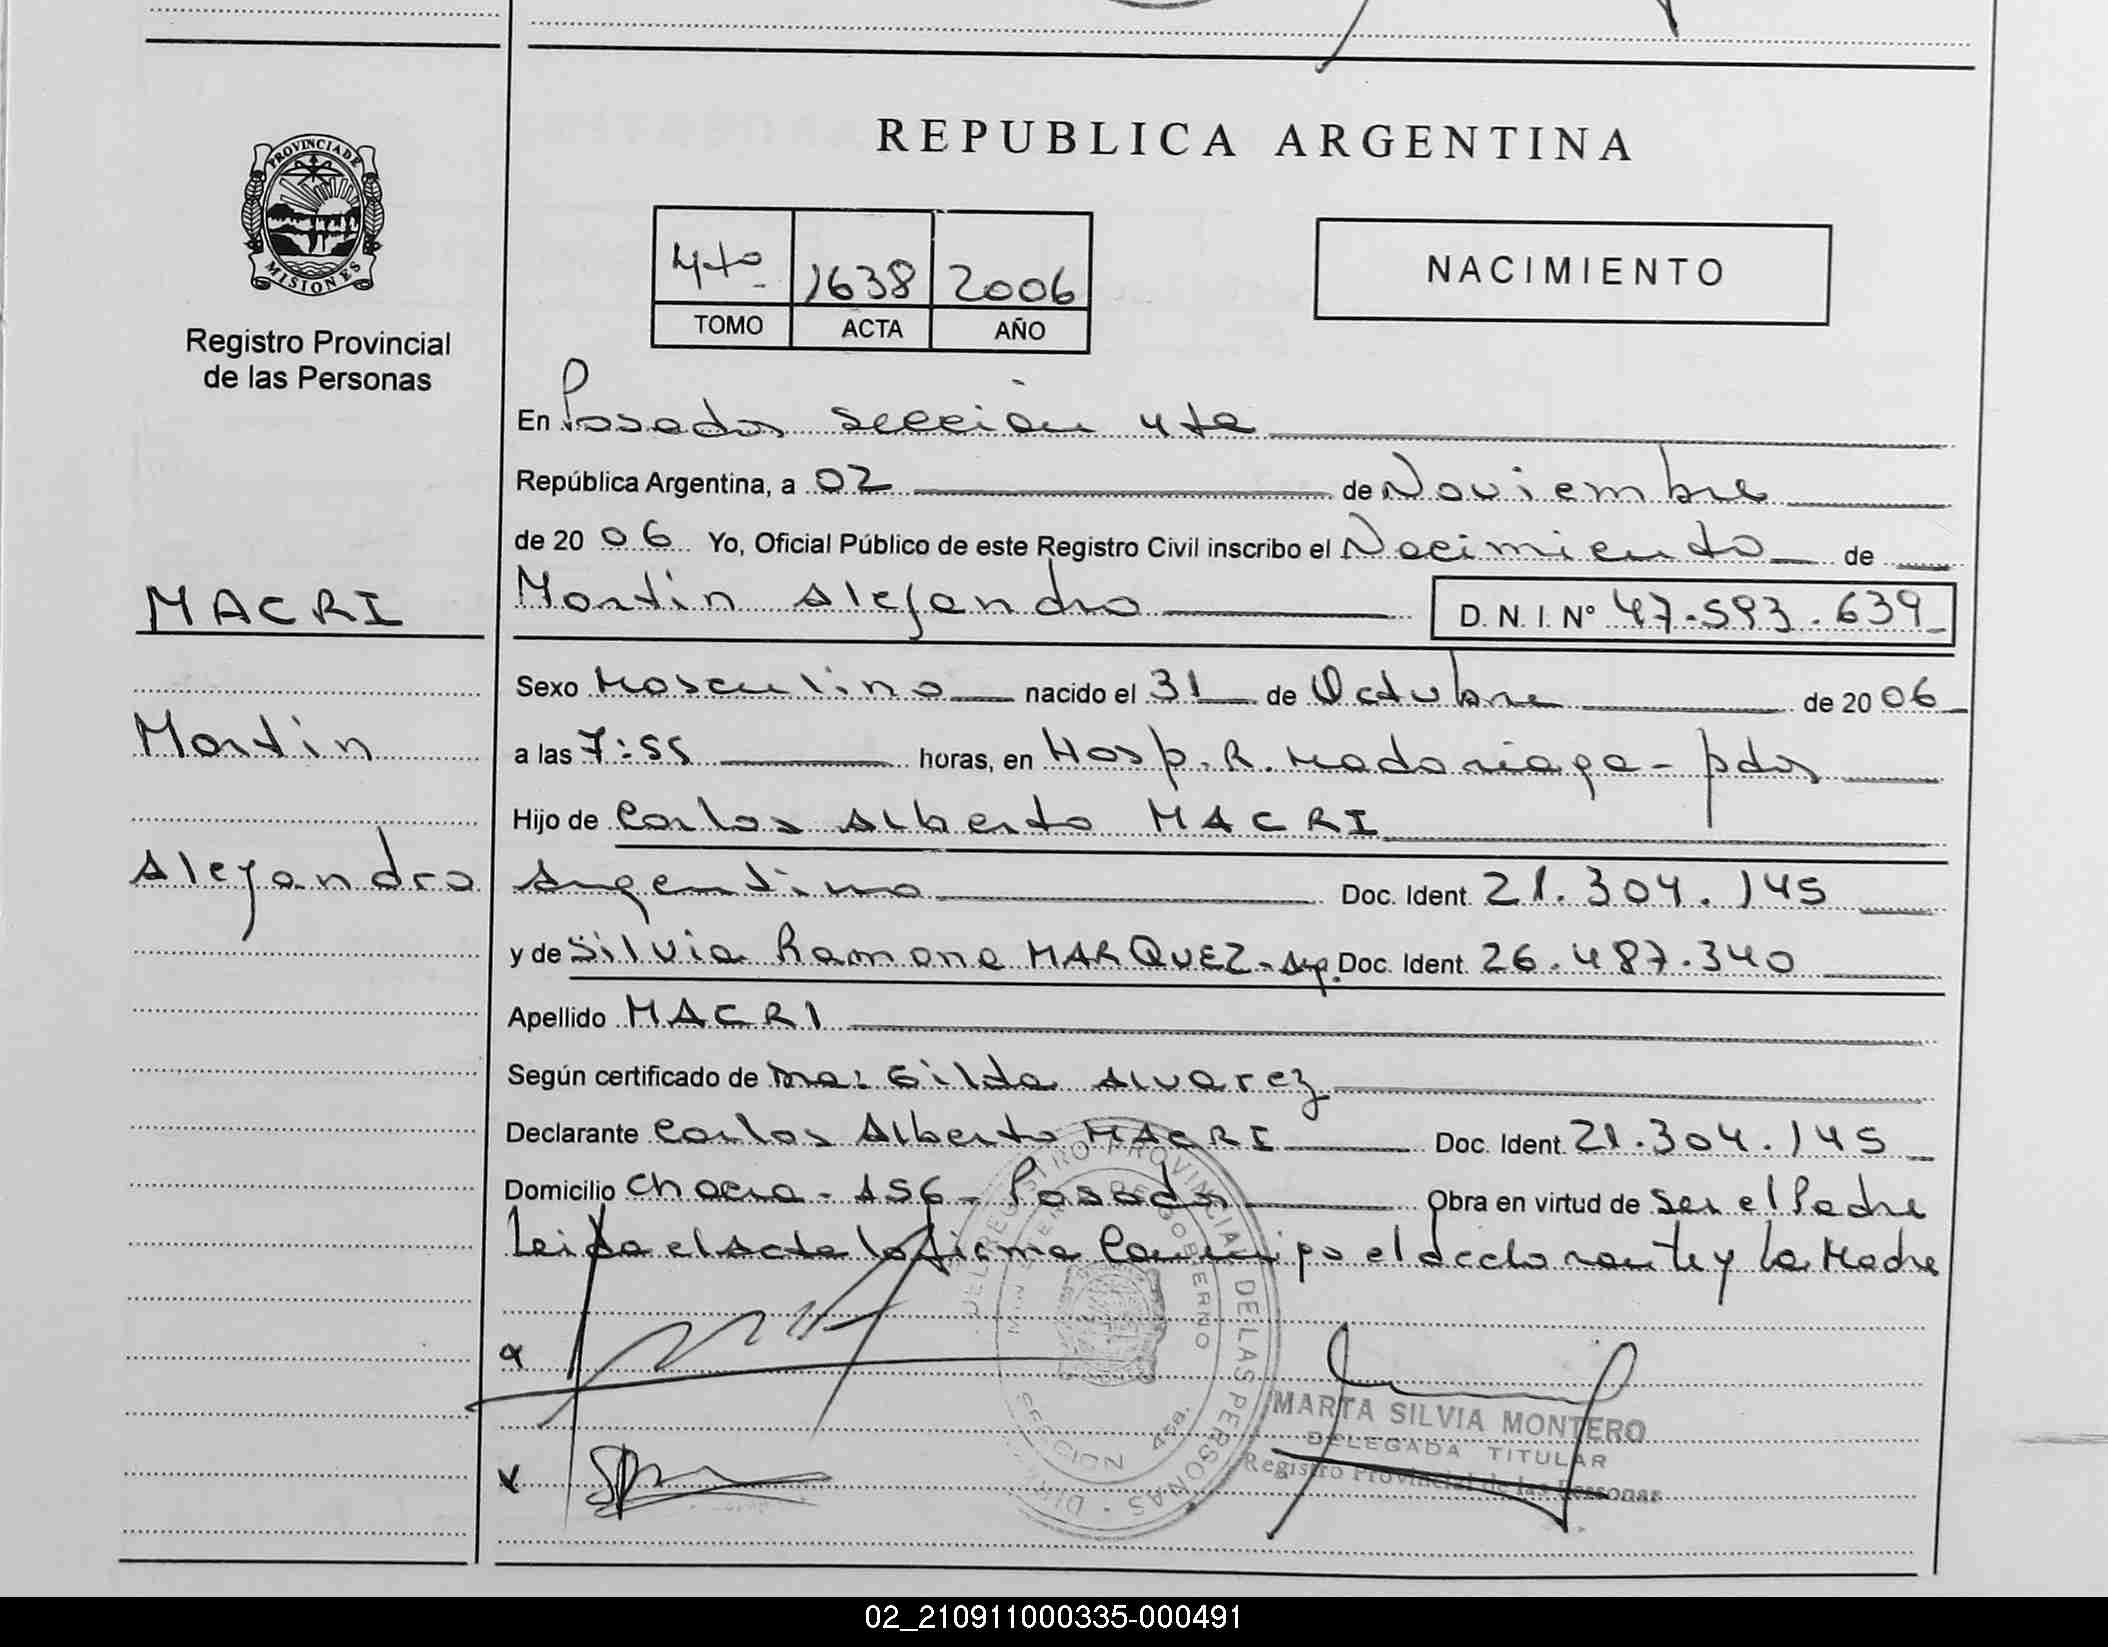 PROVINCIA DE
MISIONES
Registro Provincial
de las Personas
REPUBLICA ARGENTINA
4to 1638 2006
TOMO ACTA AÑO
NACIMIENTO
En Posadas sección 4ta
República Argentina, a 02 de Noviembre
de 20 06 Yo, Oficial Público de este Registro Civil inscribo el Nacimiento de
Martin Alejandro D. N. I. N° 47.593.639
MACRI
Martin
Alejandro
Sexo Masculino nacido el 31 de Octubre de 20 06
a las 7:55 horas, en Hosp. R. Madariaga - pdas
Hijo de Carlos Alberto MACRI
Argentino Doc. Ident. 21.304.145
y de Silvia Ramona MARQUEZ - Arg. Doc. Ident. 26.487.340
Apellido MACRI
Según certificado de Gilda Alvarez
Declarante Carlos Alberto MACRI Doc. Ident. 21.304.145
Domicilio Chacra - 156 - Posadas Obra en virtud de ser el Padre
Leida el acta la firma Conmigo el declarante y la Madre
REGISTRO PROVINCIAL DE LAS PERSONAS
DE GOBIERNO
SECCION 4ta.
MARTA SILVIA MONTERO
DELEGADA TITULAR
Registro Provincial de las Personas
02_210911000335-000491